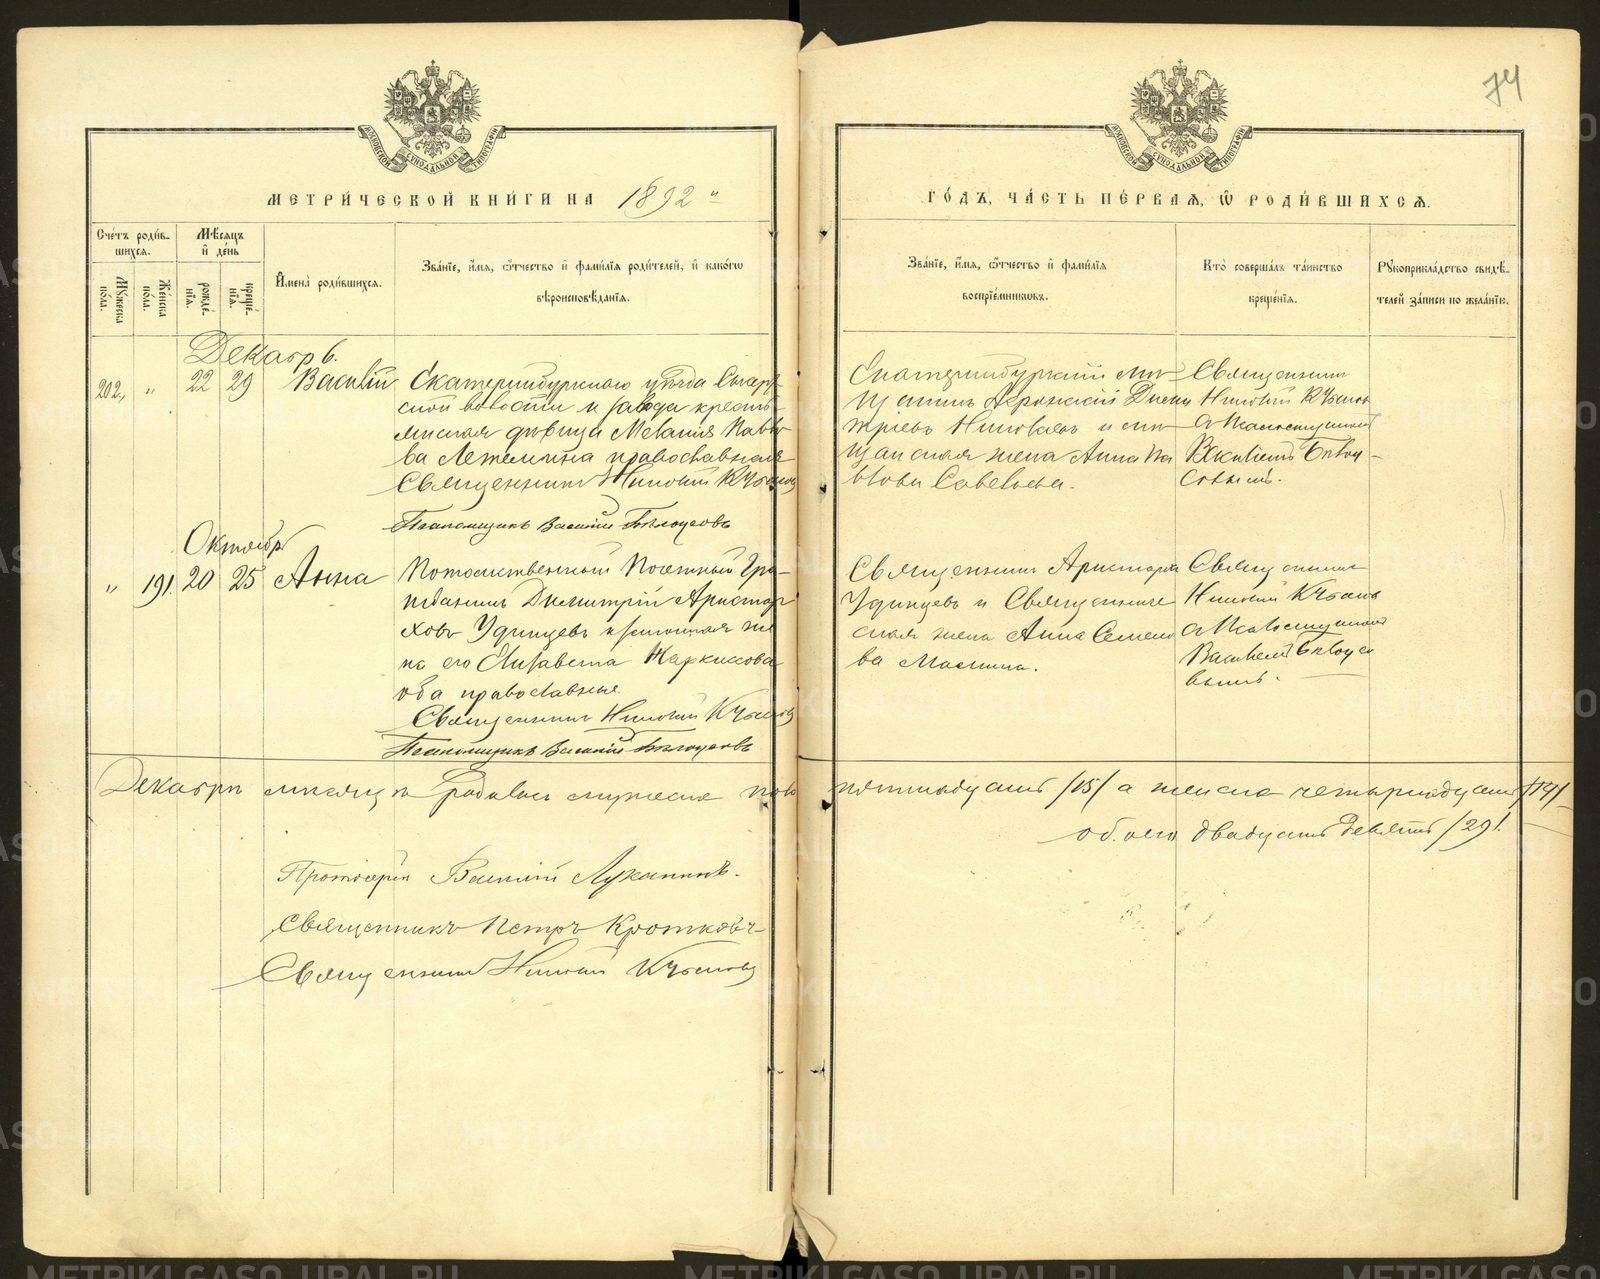 74
МЕТРИЧЕСКОЙ КНИГИ НА 1892 ГОДЪ, ЧАСТЬ ПЕРВАЯ, Ѿ РОДИВШИХСЯ.
Счетъ родив-
шихся.
Мужеска
пола.
Женска
пола.
Мѣсяцъ
и день
рожде-
нія.
креще-
нія.
Имена родившихся.
Званіе, имя, ѿтчество и фамилія родителей, и какогѡ
вѣроисповѣданія.
Званіе, имя, ѿтчество и фамилія
воспріемникѡвъ.
Кто совершалъ таинство
крещенія.
Рукоприкладство свидѣ-
телей записи по желанію.
Декабрь.
202 „ 22 29 Василій
Екатеринбургскаго уѣзда Сысерт-
ской волости и завода кресть-
янская дѣвица Меланія Павло-
ва православная
Священникъ
Псаломщикъ Василій Бѣлоусовъ
Екатеринбургскій мѣ-
щанинъ Дими
тріевъ и мѣ-
щанская жена Анна Па
влова Савельева.
Священникъ
съ Псаломщикомъ
Василіемъ Бѣлоу-
совымъ.
Октябрь
„ 191. 20 25 Анна
Потомственный Почетный Гра-
жданинъ Димитрій Аристар-
ховъ Удинцевъ и законная же
на его Елизавета Наркиссова
оба православные.
Священникъ
Псаломщикъ Василій Бѣлоусовъ
Священникъ Аристархъ
Удинцевъ и Священниче
ская жена Анна Семено
ва
Священникъ
съ Псаломщикомъ
Василіемъ Бѣлоусо
вымъ.
Декабря мѣсяца родилось мужеска пола пятнадцать /15/ а женска четырнадцать /14/
обоего двадцать девять /29/.
Протоіерей Василій Луканинъ.
Священникъ Петръ Кротковъ
Священникъ